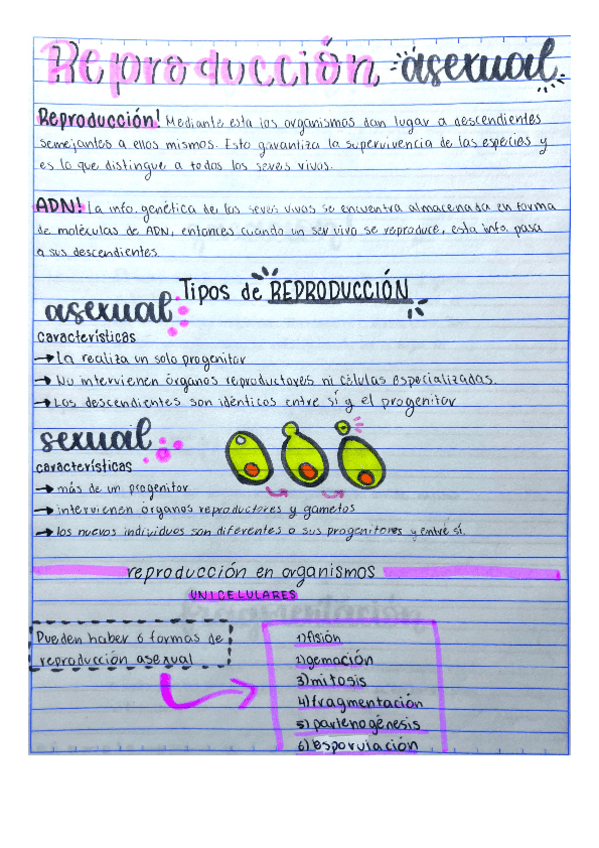 Reproducción asexual
Reproducción! Mediante esta los organismos dan lugar a descendientes
semejantes a ellos mismos. Esto garantiza la supervivencia de las especies y
es lo que distingue a todos los seres vivos.
ADN! La info. genética de los seres vivos se encuentra almacenada en forma
de moléculas de ADN, entonces cuando un ser vivo se reproduce, esta info pasa
a sus descendientes.
Tipos de REPRODUCCIÓN
asexual
características
→ La realiza un solo progenitor
→ No intervienen órganos reproductores ni células especializadas.
→ Los descendientes son idénticos entre sí y el progenitor
sexual
características
→ más de un progenitor
→ intervienen órganos reproductores y gametos
→ los nuevos individuos son diferentes a sus progenitores y entre sí.
reproducción en organismos
UNICELULARES
Pueden haber 6 formas de
reproducción asexual
1) fisión
2) gemación
3) mitosis
4) fragmentación
5) partenogénesis
6) esporulación